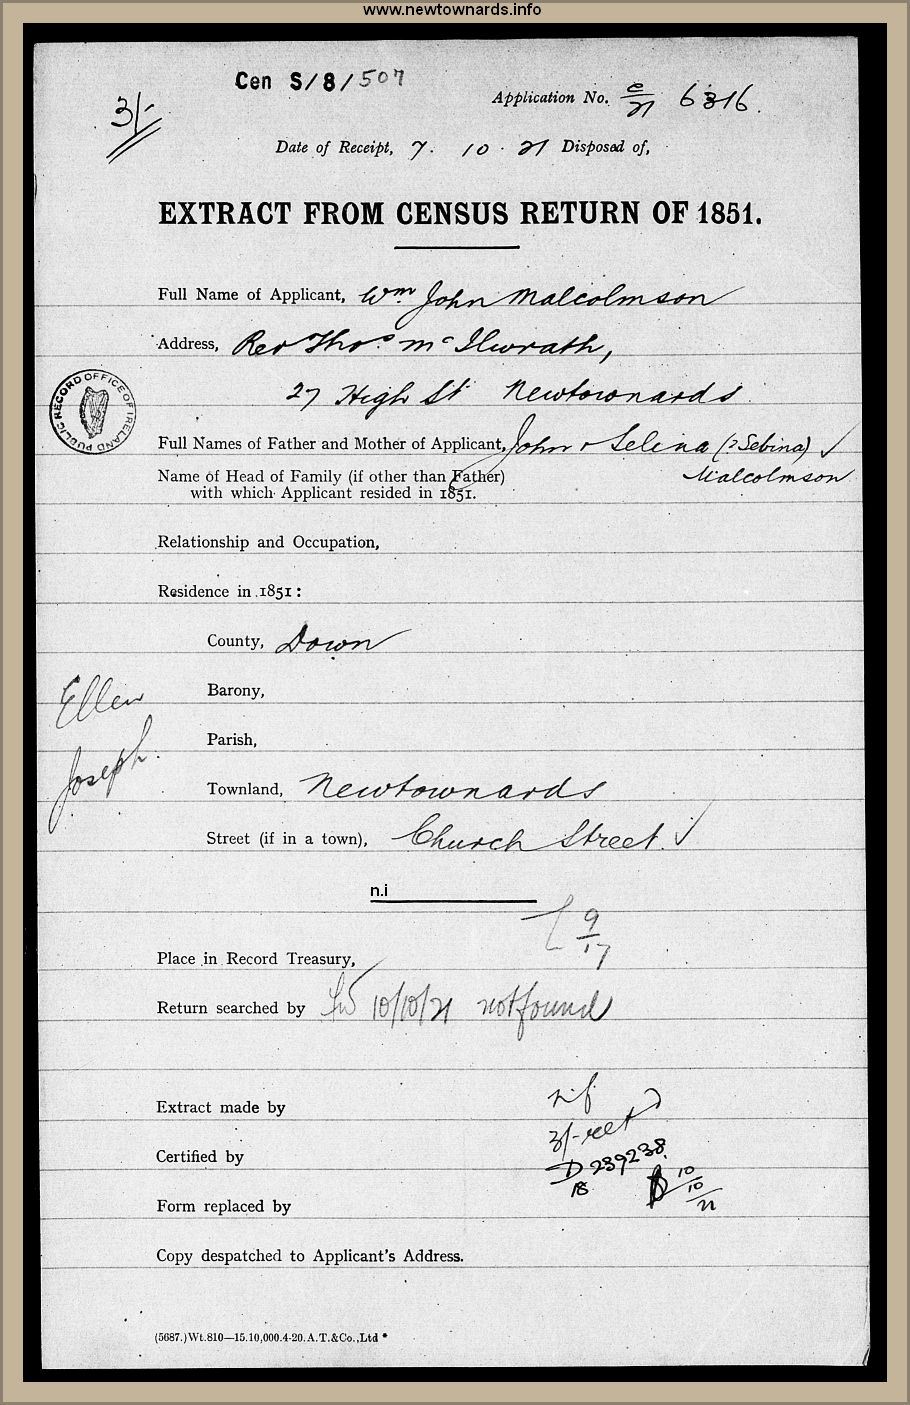 www.newtownards.info
Cen S/8/507
3/-
Application No. C/21 6316.
Date of Receipt, 7. 10. 21 Disposed of,
EXTRACT FROM CENSUS RETURN OF 1851.
Full Name of Applicant, Wm John Malcolmson
Address, Rev Thos. McIlwrath,
27 High St Newtownards.
PUBLIC RECORD OFFICE OF IRELAND
Full Names of Father and Mother of Applicant, John & Selina (?Sebina) ✓
Name of Head of Family (if other than Father) Malcolmson
with which Applicant resided in 1851.
Relationship and Occupation,
Residence in 1851:
County, Down
Ellen
Barony,
Parish,
Joseph.
Townland, Newtownards
Street (if in a town), Church Street. ✓
n.i
9/17
Place in Record Treasury,
Return searched by 10/10/21 not found
Extract made by n.f.
3/- ret d
Certified by D 239238
18 10/10/21
Form replaced by
Copy despatched to Applicant's Address.
(5687.)Wt.810—15.10,000.4-20.A.T.&Co.,Ltd